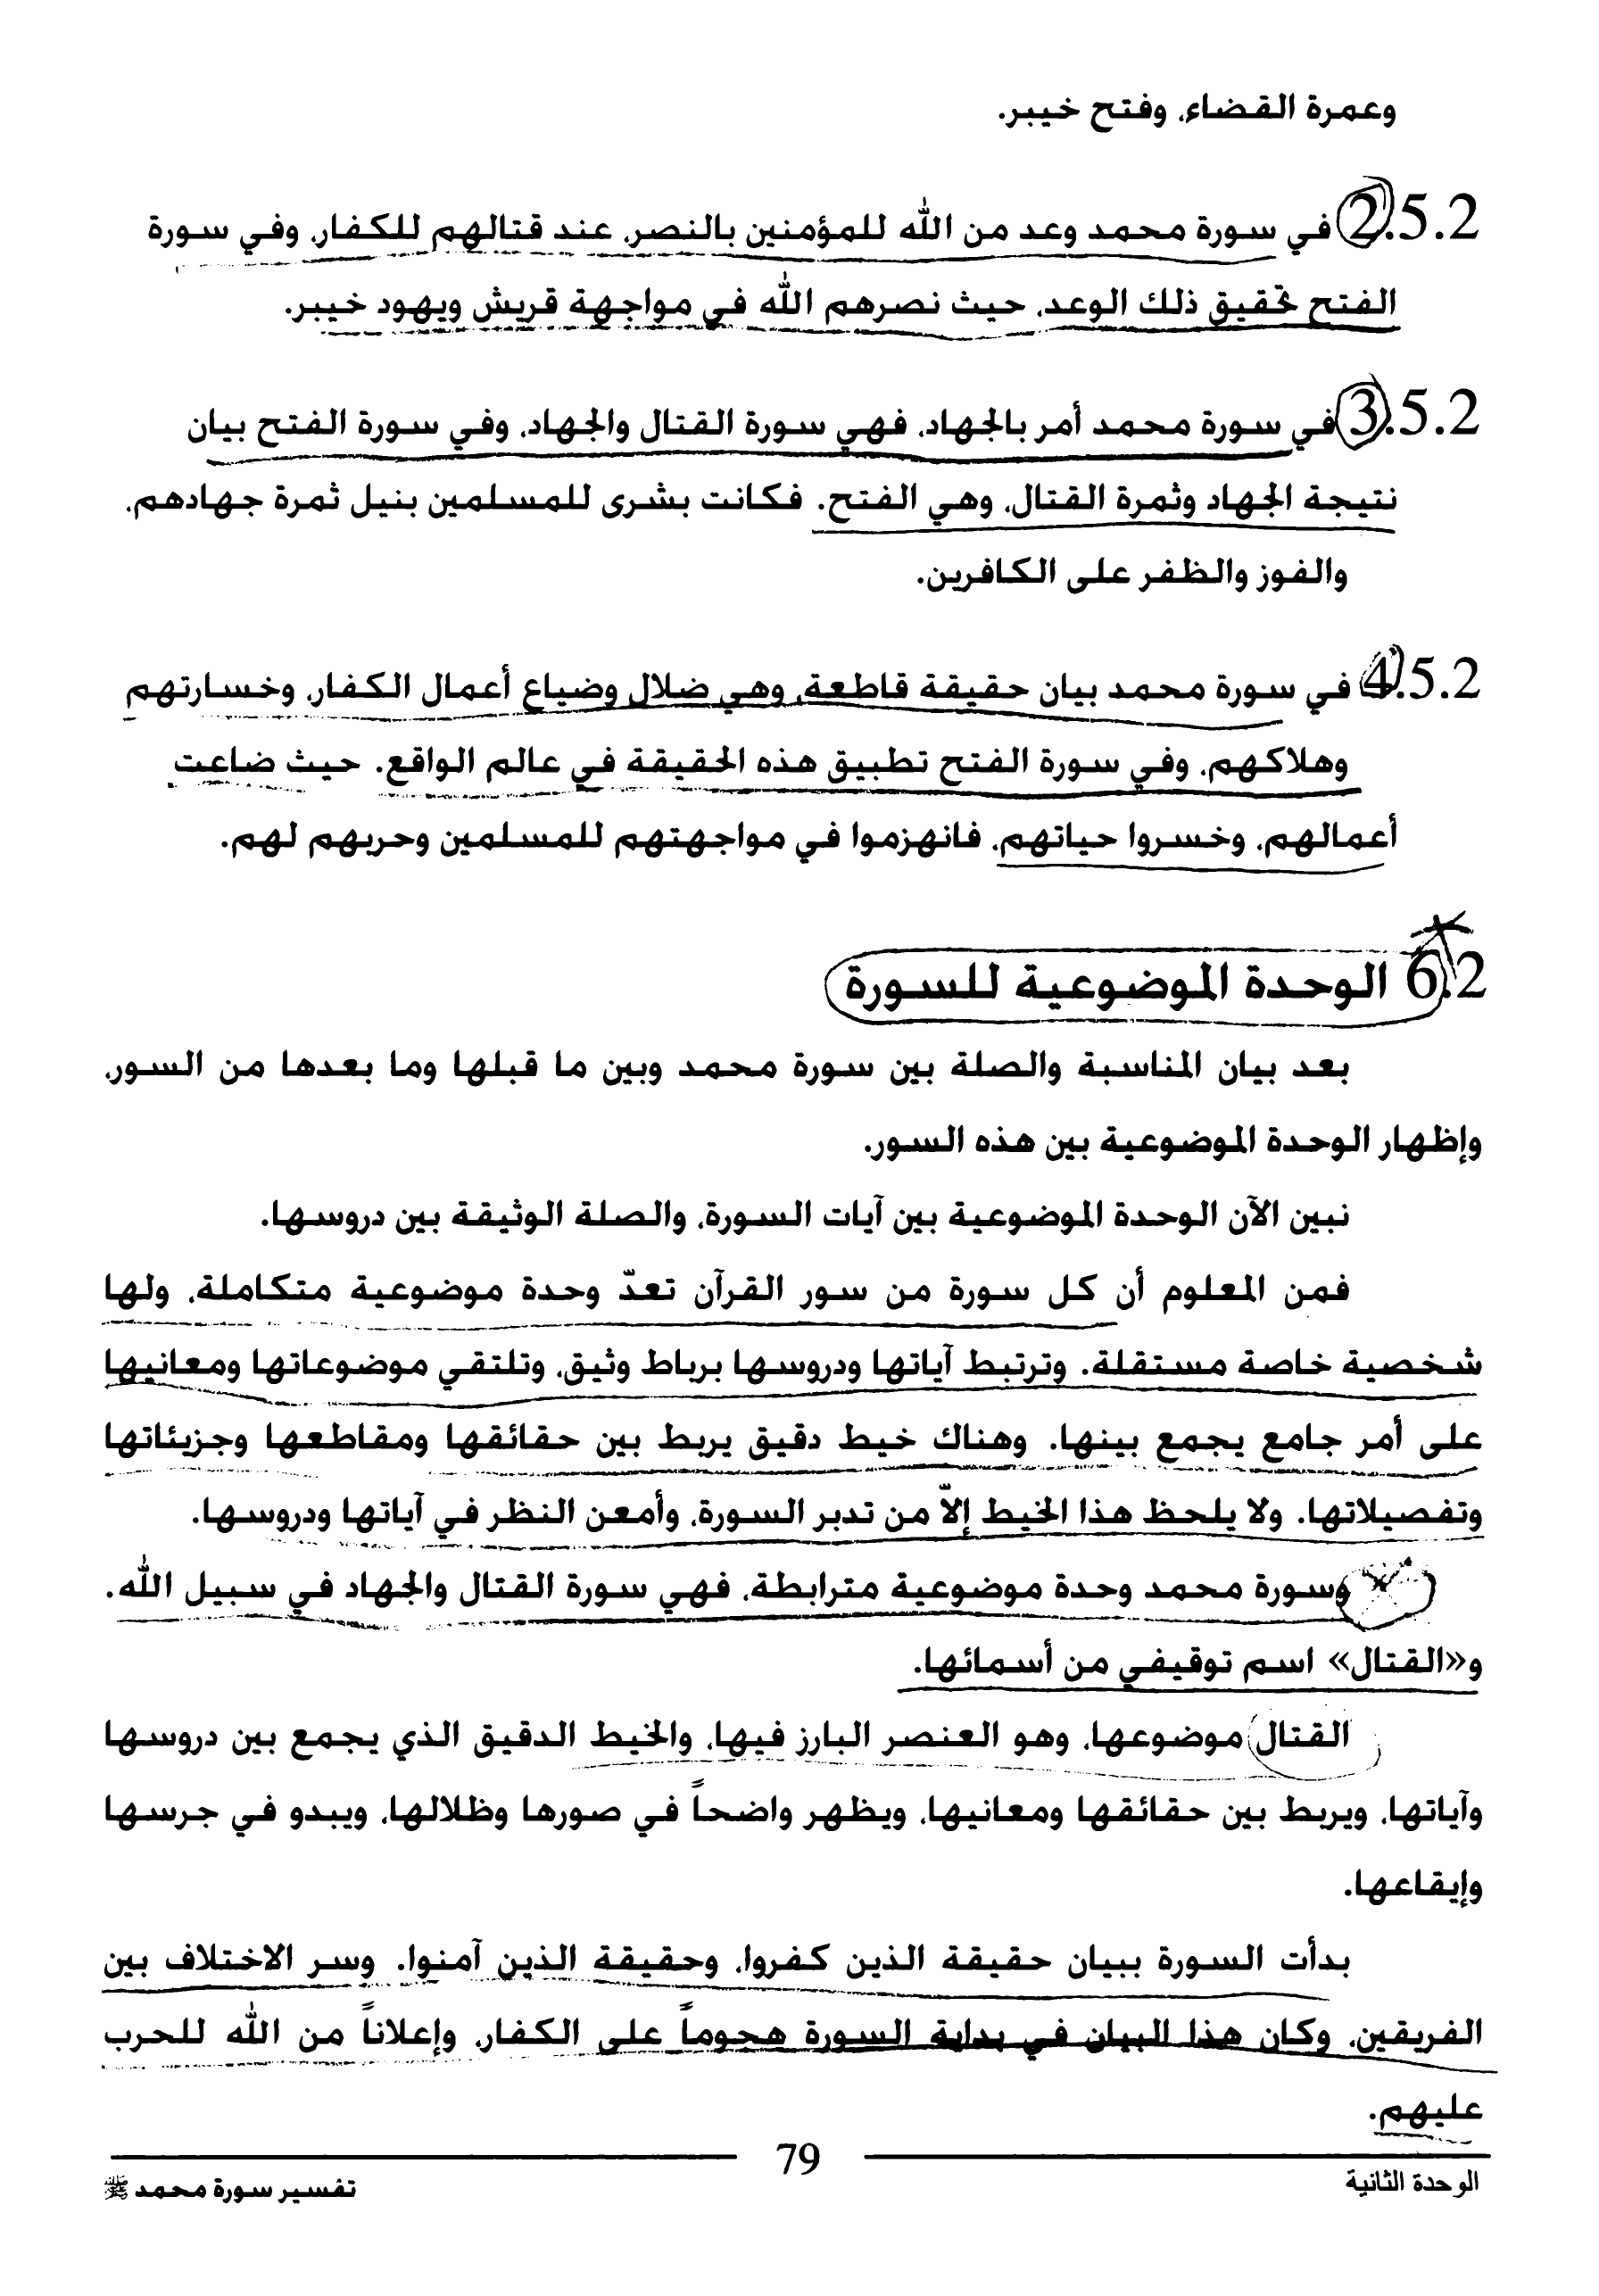 وعمرة القضاء، وفتح خيبر.
2.5.2 في سورة محمد وعد من الله للمؤمنين بالنصر، عند قتالهم للكفار، وفي سورة
الفتح تحقيق ذلك الوعد، حيث نصرهم الله في مواجهة قريش ويهود خيبر.
3.5.2 في سورة محمد أمر بالجهاد، فهي سورة القتال والجهاد، وفي سورة الفتح بيان
نتيجة الجهاد وثمرة القتال، وهي الفتح. فكانت بشرى للمسلمين بنيل ثمرة جهادهم،
والفوز والظفر على الكافرين.
4.5.2 في سورة محمد بيان حقيقة قاطعة، وهي ضلال وضياع أعمال الكفار، وخسارتهم
وهلاكهم، وفي سورة الفتح تطبيق هذه الحقيقة في عالم الواقع. حيث ضاعت
أعمالهم، وخسروا حياتهم، فانهزموا في مواجهتهم للمسلمين وحربهم لهم.
6.2 الوحدة الموضوعية للسورة
بعد بيان المناسبة والصلة بين سورة محمد وبين ما قبلها وما بعدها من السور،
وإظهار الوحدة الموضوعية بين هذه السور.
نبين الآن الوحدة الموضوعية بين آيات السورة، والصلة الوثيقة بين دروسها.
فمن المعلوم أن كل سورة من سور القرآن تعدّ وحدة موضوعية متكاملة، ولها
شخصية خاصة مستقلة. وترتبط آياتها ودروسها برباط وثيق، وتلتقي موضوعاتها ومعانيها
على أمر جامع يجمع بينها. وهناك خيط دقيق يربط بين حقائقها ومقاطعها وجزيئاتها
وتفصيلاتها. ولا يلحظ هذا الخيط إلاّ من تدبر السورة، وأمعن النظر في آياتها ودروسها.
وسورة محمد وحدة موضوعية مترابطة، فهي سورة القتال والجهاد في سبيل الله.
و«القتال» اسم توقيفي من أسمائها.
القتال موضوعها، وهو العنصر البارز فيها، والخيط الدقيق الذي يجمع بين دروسها
وآياتها، ويربط بين حقائقها ومعانيها، ويظهر واضحاً في صورها وظلالها، ويبدو في جرسها
وإيقاعها.
بدأت السورة ببيان حقيقة الذين كفروا، وحقيقة الذين آمنوا. وسر الاختلاف بين
الفريقين، وكان هذا البيان في بداية السورة هجوماً على الكفار، وإعلاناً من الله للحرب
عليهم.
79
الوحدة الثانية
تفسير سورة محمد ﷺ